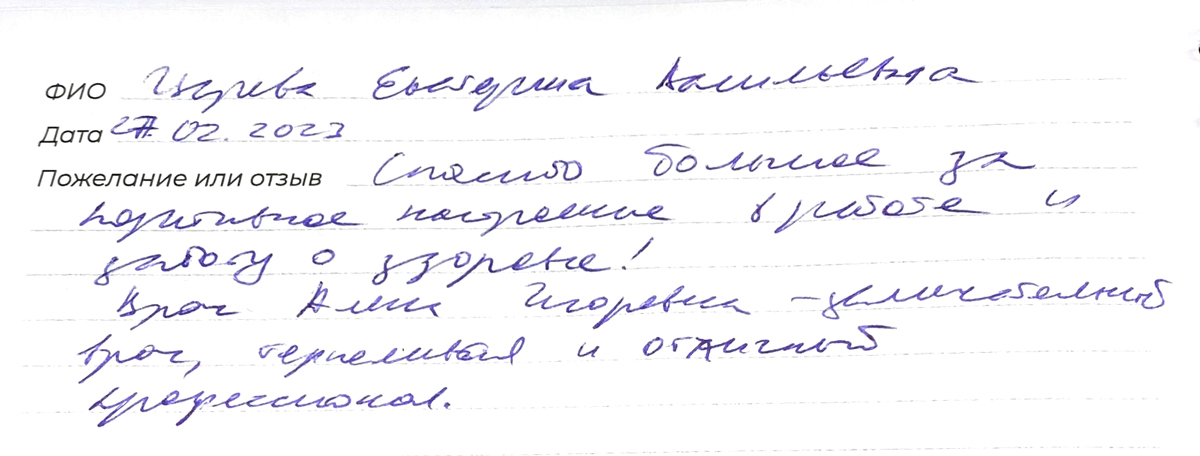 ФИО Екатерина Васильевна
Дата 27.02.2023
Пожелание или отзыв Спасибо большое за
позитивное настроение в работе и
заботу о здоровье!
Врач Алина Игоревна – замечательный
врач, терпеливая и отличный
профессионал.